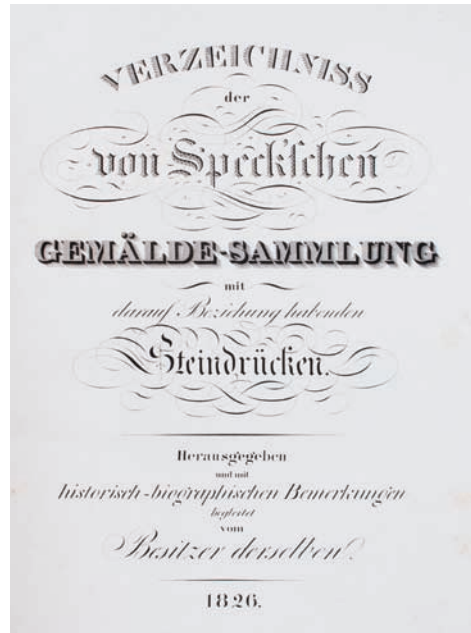 VERZEICHNISS
der
von Speck'schen
GEMÄLDE-SAMMLUNG
mit
darauf Beziehung habenden
Steindrücken.
Herausgegeben
und mit
historisch-biographischen Bemerkungen
begleitet
vom
Besitzer derselben.
1826.